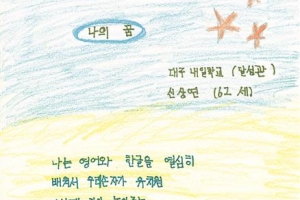 나의 꿈
대구 내일학교 (달성관)
신승연 (62 세)
나는 영어와 한글을 열심히
배워서 우리손자가 유치원